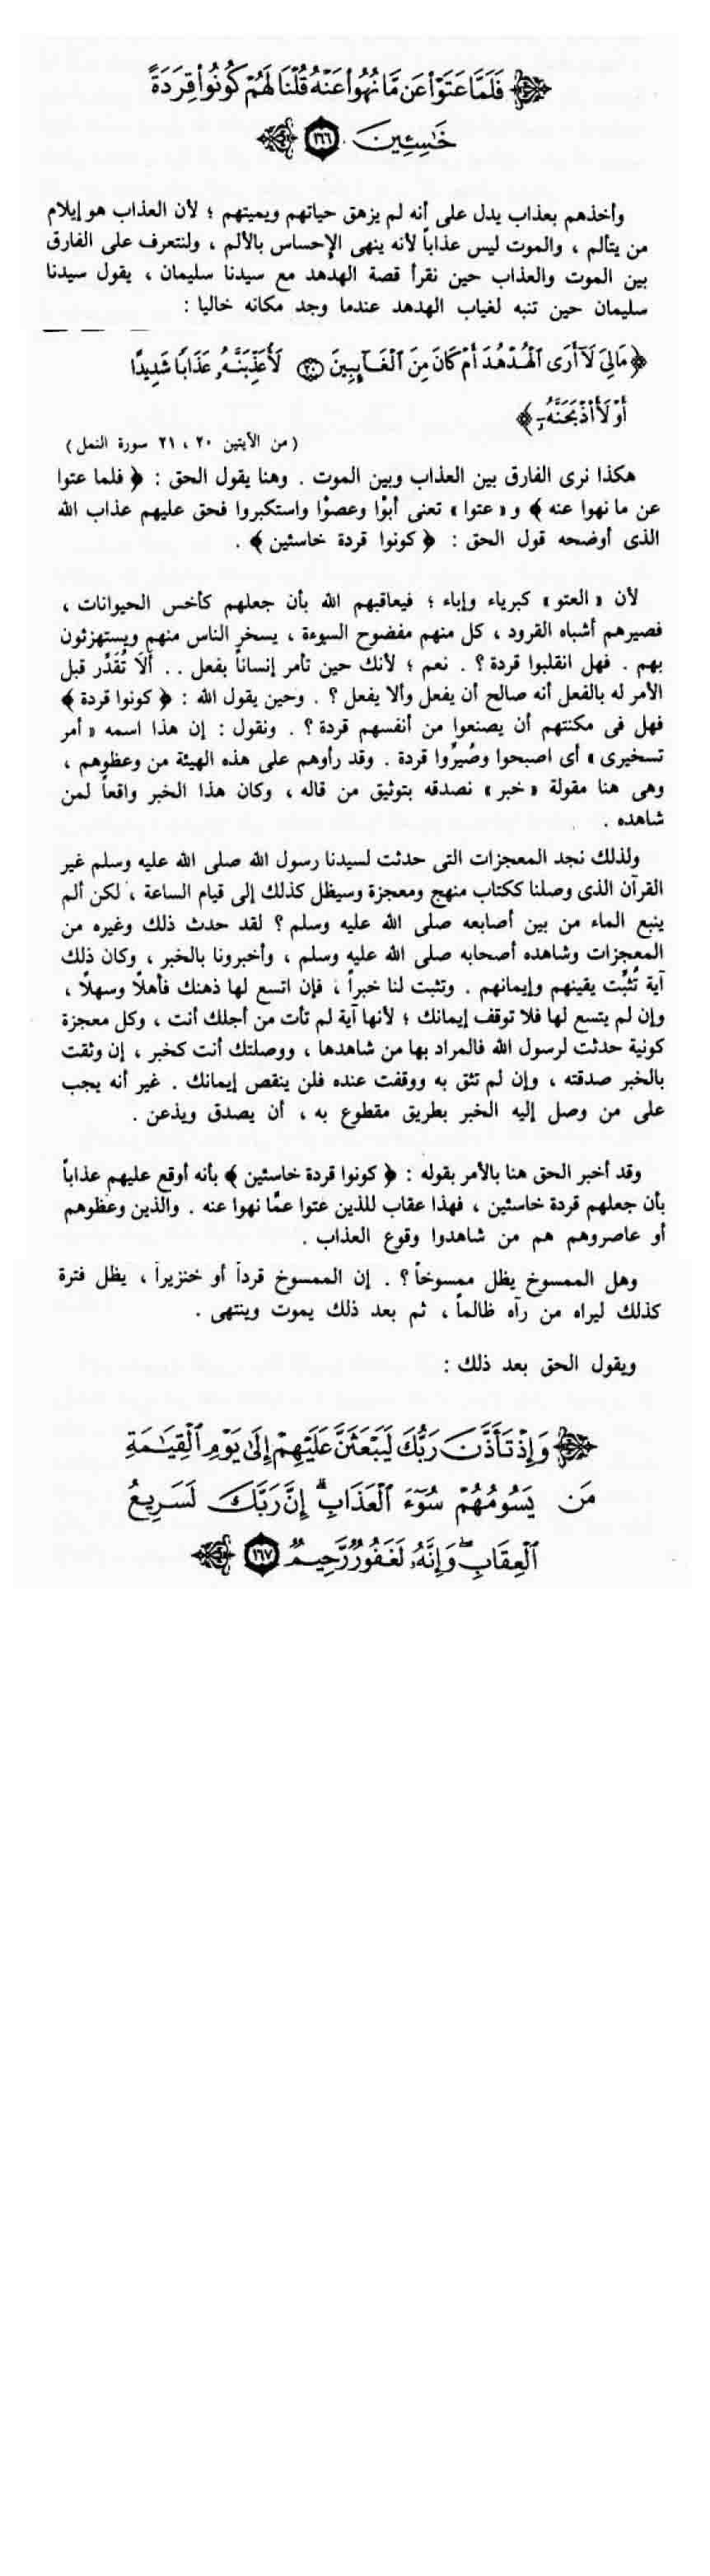 ﴿ فَلَمَّا عَتَوْا۟ عَن مَّا نُهُوا۟ عَنْهُ قُلْنَا لَهُمْ كُونُوا۟ قِرَدَةً
خَٰسِـِٔينَ ١٦٦ ﴾
وأخذهم بعذاب يدل على أنه لم يزهق حياتهم ويميتهم ؛ لأن العذاب هو إيلام
من يتألم ، والموت ليس عذاباً لأنه ينهى الإحساس بالألم ، ولنتعرف على الفارق
بين الموت والعذاب حين نقرأ قصة الهدهد مع سيدنا سليمان ، يقول سيدنا
سليمان حين تنبه لغياب الهدهد عندما وجد مكانه خاليا :
﴿ مَالِىَ لَآ أَرَى ٱلْهُدْهُدَ أَمْ كَانَ مِنَ ٱلْغَآئِبِينَ ٢٠ لَأُعَذِّبَنَّهُۥ عَذَابًا شَدِيدًا
أَوْ لَأَا۟ذْبَحَنَّهُۥٓ ﴾
( من الآيتين ٢٠ ، ٢١ سورة النمل )
هكذا نرى الفارق بين العذاب وبين الموت . وهنا يقول الحق : ﴿ فلما عتوا
عن ما نهوا عنه ﴾ و « عتوا » تعنى أبوْا وعصوْا واستكبروا فحق عليهم عذاب الله
الذى أوضحه قول الحق : ﴿ كونوا قردة خاسئين ﴾ .
لأن « العتو » كبرياء وإباء ؛ فيعاقبهم الله بأن جعلهم كأخس الحيوانات ،
فصيرهم أشباه القرود ، كل منهم مفضوح السوءة ، يسخر الناس منهم ويستهزئون
بهم . فهل انقلبوا قردة ؟ . نعم ؛ لأنك حين تأمر إنساناً بفعل . . ألَا تُقَدِّر قبل
الأمر له بالفعل أنه صالح أن يفعل وألا يفعل ؟ . وحين يقول الله : ﴿ كونوا قردة ﴾
فهل فى مكنتهم أن يصنعوا من أنفسهم قردة ؟ . ونقول : إن هذا اسمه « أمر
تسخيرى » أى اصبحوا وصُيرِّوا قردة . وقد رأوهم على هذه الهيئة من وعظوهم ،
وهى هنا مقولة « خبر » نصدقه بتوثيق من قاله ، وكان هذا الخبر واقعاً لمن
شاهده .
ولذلك نجد المعجزات التى حدثت لسيدنا رسول الله صلى الله عليه وسلم غير
القرآن الذى وصلنا ككتاب منهج ومعجزة وسيظل كذلك إلى قيام الساعة ، لكن ألم
ينبع الماء من بين أصابعه صلى الله عليه وسلم ؟ لقد حدث ذلك وغيره من
المعجزات وشاهده أصحابه صلى الله عليه وسلم ، وأخبرونا بالخبر ، وكان ذلك
آية تُثبِّت يقينهم وإيمانهم . وتثبت لنا خبراً ، فإن اتسع لها ذهنك فأهلاً وسهلاً ،
وإن لم يتسع لها فلا توقف إيمانك ؛ لأنها آية لم تأت من أجلك أنت ، وكل معجزة
كونية حدثت لرسول الله فالمراد بها من شاهدها ، ووصلتك أنت كخبر ، إن وثقت
بالخبر صدقته ، وإن لم تثق به ووقفت عنده فلن ينقص إيمانك . غير أنه يجب
على من وصل إليه الخبر بطريق مقطوع به ، أن يصدق ويذعن .
وقد أخبر الحق هنا بالأمر بقوله : ﴿ كونوا قردة خاسئين ﴾ بأنه أوقع عليهم عذاباً
بأن جعلهم قردة خاسئين ، فهذا عقاب للذين عتوا عمَّا نهوا عنه . والذين وعظوهم
أو عاصروهم هم من شاهدوا وقوع العذاب .
وهل الممسوخ يظل ممسوخاً ؟ . إن الممسوخ قرداً أو خنزيراً ، يظل فترة
كذلك ليراه من رآه ظالماً ، ثم بعد ذلك يموت وينتهى .
ويقول الحق بعد ذلك :
﴿ وَإِذْ تَأَذَّنَ رَبُّكَ لَيَبْعَثَنَّ عَلَيْهِمْ إِلَىٰ يَوْمِ ٱلْقِيَٰمَةِ
مَن يَسُومُهُمْ سُوٓءَ ٱلْعَذَابِ ۗ إِنَّ رَبَّكَ لَسَرِيعُ
ٱلْعِقَابِ ۖ وَإِنَّهُۥ لَغَفُورٌ رَّحِيمٌ ١٦٧ ﴾